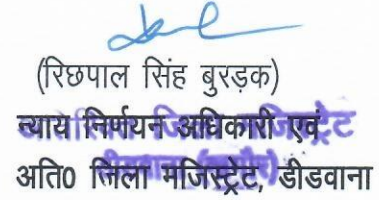 (रिछपाल सिंह बुरड़क)
न्याय निर्णयन अधिकारी एवं
अति0 जिला मजिस्ट्रेट, डीडवाना